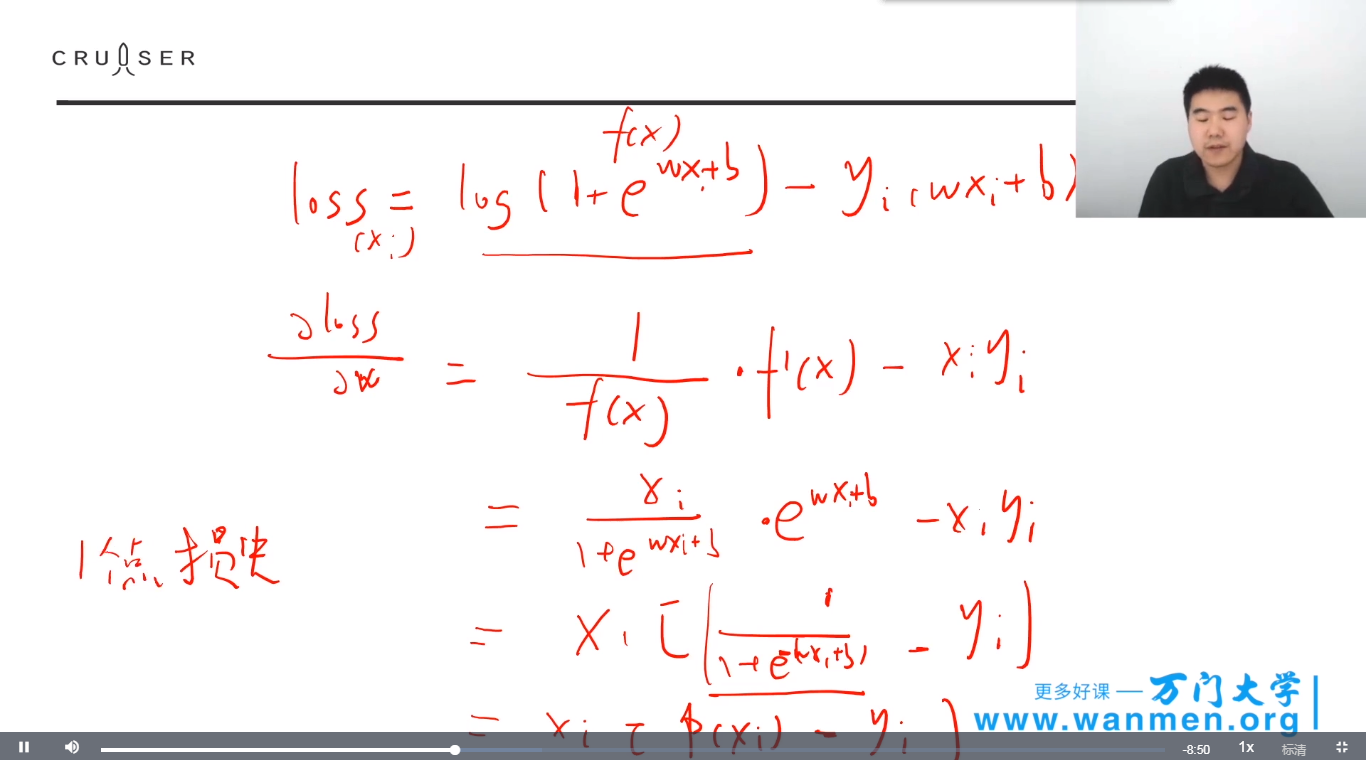 CRUISER
f(x)
loss(xᵢ) = log(1+e^(wxᵢ+b)) - yᵢ(wxᵢ+b)
∂loss/∂w = 1/f(x) · f'(x) - xᵢyᵢ
= xᵢ/(1+e^(wxᵢ+b)) · e^(wxᵢ+b) - xᵢyᵢ
1个点损失
= xᵢ[(1/(1+e^-(wxᵢ+b)) - yᵢ)
= xᵢ[p(xᵢ) - yᵢ)
更多好课 — 万门大学
www.wanmen.org
-8:50 1x 标清